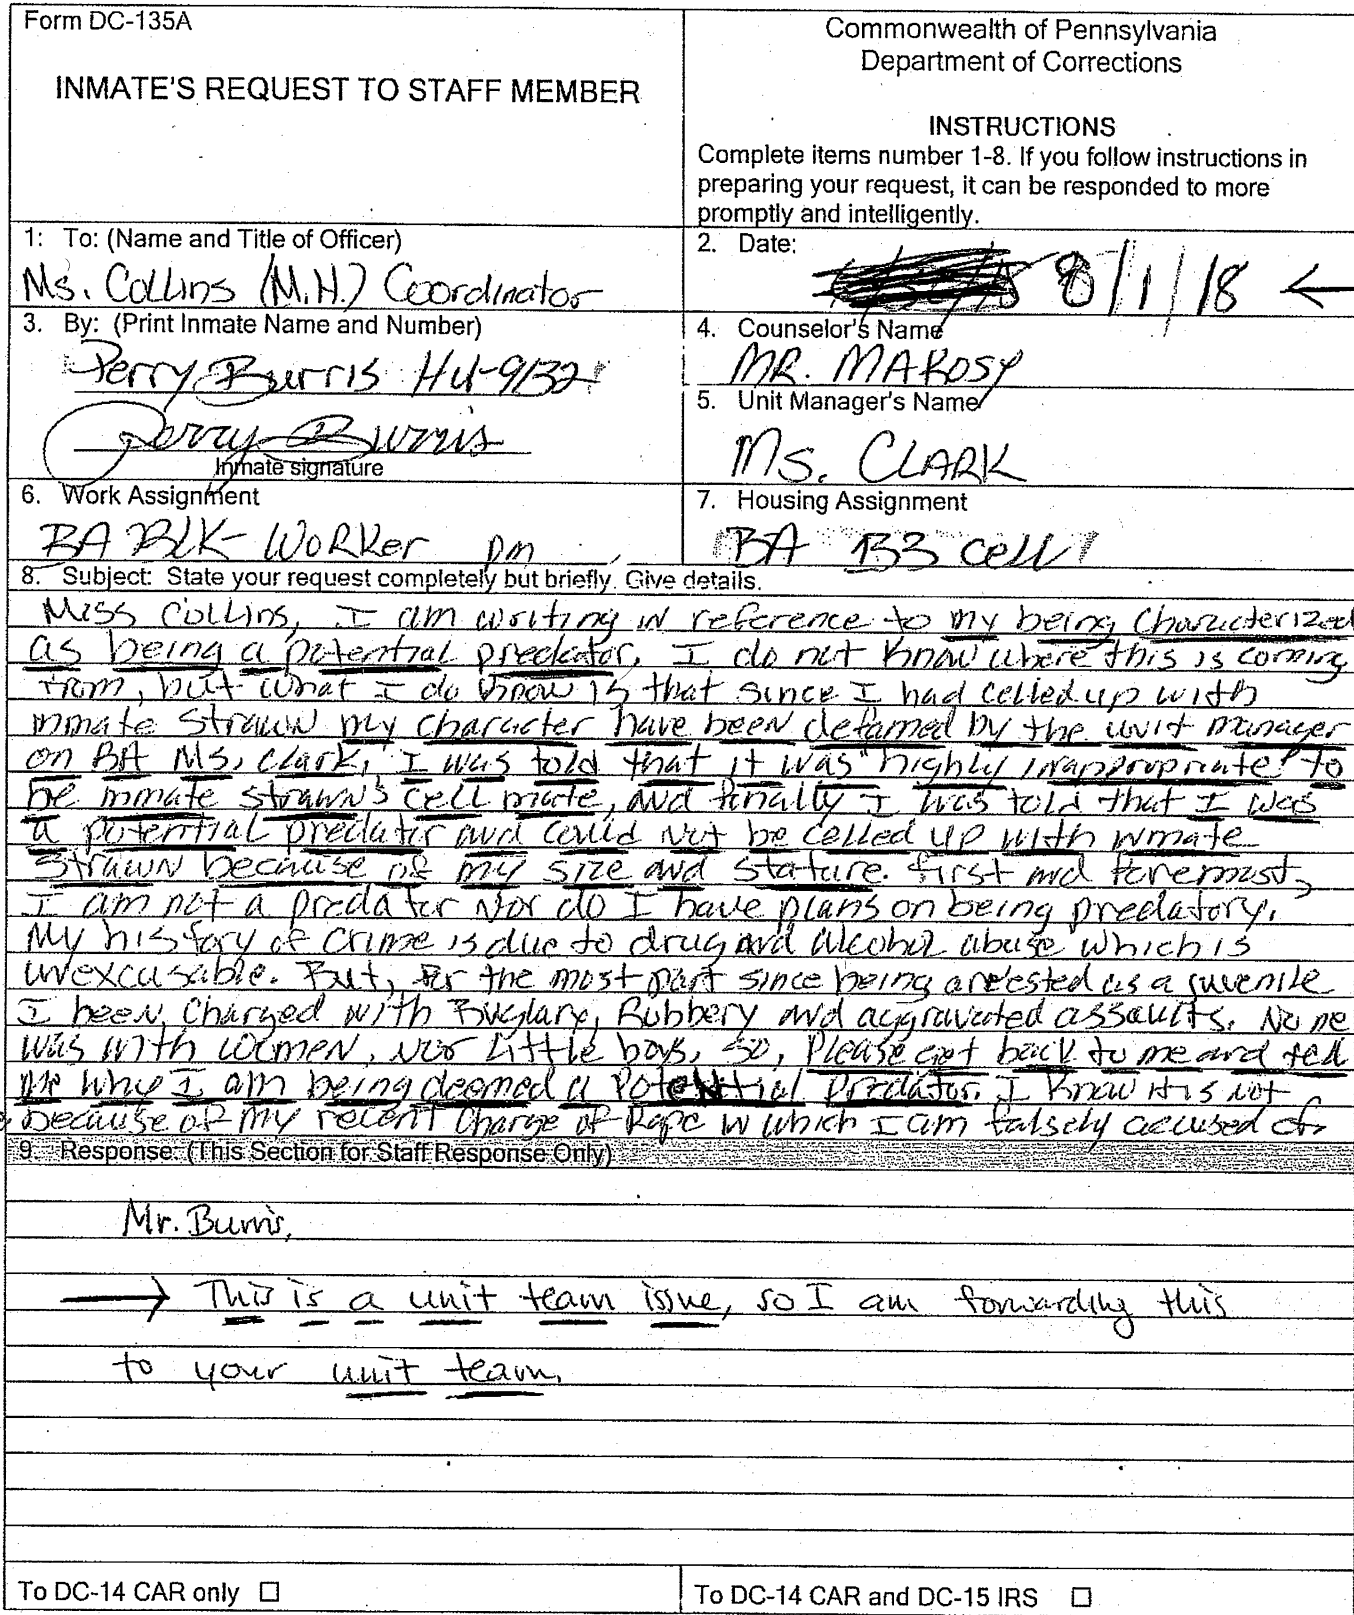 Form DC-135A
INMATE'S REQUEST TO STAFF MEMBER
Commonwealth of Pennsylvania
Department of Corrections
INSTRUCTIONS
Complete items number 1-8. If you follow instructions in
preparing your request, it can be responded to more
promptly and intelligently.
1: To: (Name and Title of Officer)
Ms. Collins (M.H.) Coordinator
2. Date:
8/1/18 ←
3. By: (Print Inmate Name and Number)
Perry Burris HU-9132
Perry Burris
Inmate signature
4. Counselor's Name
MR. MAROSY
5. Unit Manager's Name
MS. CLARK
6. Work Assignment
BA BLK-WORKer pm
7. Housing Assignment
BA B3 cell
8. Subject: State your request completely but briefly. Give details.
Miss Collins, I am writing in reference to my being Characterized
as being a potential predator. I do not know where this is coming
from, but what I do know is that since I had celled up with
inmate Strawn my character have been defamed by the unit manager
on BA Ms. Clark, I was told that it was "highly inappropriate" to
be inmate Strawn's cell mate, and finally I was told that I was
a potential predator and could not be celled up with inmate
Strawn because of my size and stature. first and foremost,
I am not a predator nor do I have plans on being predatory.
My history of crime is due to drug and alcohol abuse which is
unexcusable. But, for the most part since being arrested as a juvenile
I been, Charged with Buglary, Robbery and aggravated assaults. None
was with women, nor little boys, so, Please get back to me and tell
me why I am being deemed a Potential Predator. I know it is not
because of my recent Charge of Rape in which I am falsely accused of.
9. Response: (This Section for Staff Response Only)
Mr. Burris,
→ This is a unit team issue, so I am forwarding this
to your unit team.
To DC-14 CAR only ☐
To DC-14 CAR and DC-15 IRS ☐